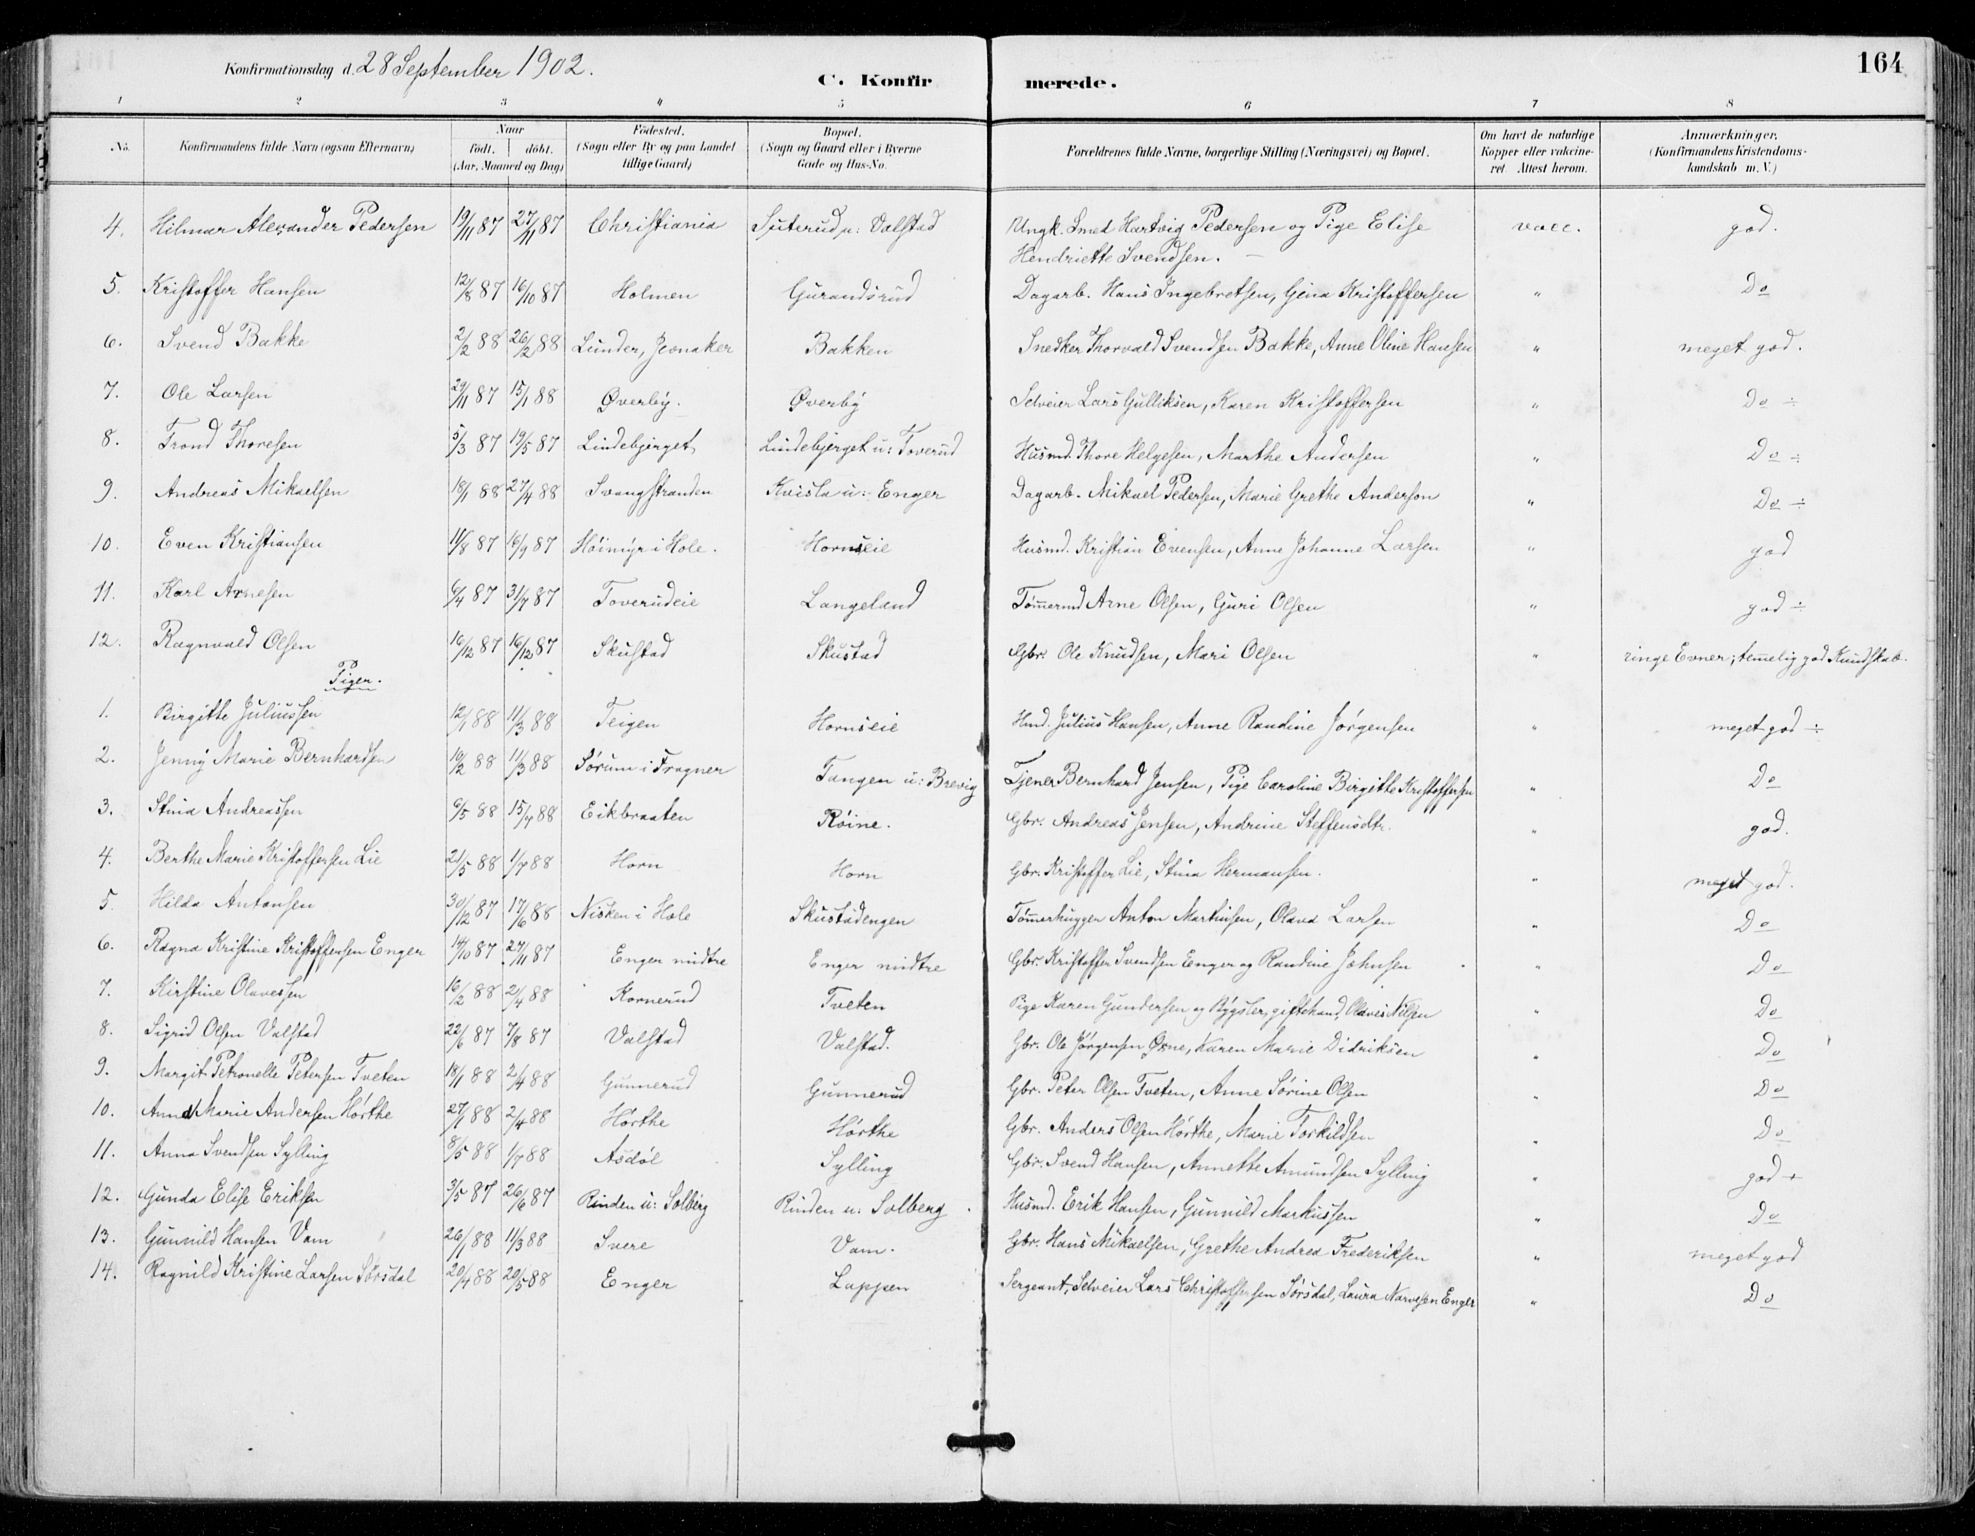 164
Konfirmationsdag d. 28 September 1902.
C. Konfirmerede.
1 2 3 4 5 6 7 8
No. Konfirmandens fulde Navn (ogsaa Efternavn) Naar født. døbt. (Aar, Maaned og Dag) Fødested. (Sogn eller By og paa Landet tillige Gaard) Bopæl. (Sogn og Gaard eller i Byerne Gade og Hus-No. Forældrenes fulde Navne, borgerlige Stilling (Næringsvei) og Bopæl. Om havt de naturlige Kopper eller vakcineret. Attest herom. Anmærkninger. (Konfirmandens Kristendomskundskab m. V.)
4. Hilmar Alexander Pedersen 19/11 87 27/11 87 Christiania Sjuterud u: Valstad Ungk. Smed Hartvig Pedersen og Pige Elise vacc. god.
Hendriette Svendsen. —
5. Kristoffer Hansen 12/8 87 16/10 87 Holmen Gurandsrud Dagarb. Hans Ingebretsen, Gina Kristoffersen " Do
6. Svend Bakke 2/2 88 26/2 88 Lunder, Jevnaker Bakken Snedker Thorvald Svendsen Bakke, Anne Oline Hansen " meget god.
7. Ole Larsen 29/11 87 15/1 88 Øverby. Øverby Selveier Lars Gulliksen, Karen Kristoffersen " Do ÷
8. Trond Thoresen 5/3 87 19/5 87 Lindebjerget Lindebjerget u: Toverud Husmd. Thore Helgesen, Marthe Andersen " Do ÷
9. Andreas Mikaelsen 18/1 88 27/4 88 Svangstranden Kvisla u: Enger Dagarb. Mikael Pedersen, Marie Grethe Anderson " Do ÷
10. Even Kristiansen 11/8 87 16/9 87 Høimyr i Hole. Hornseie Husmd. Kristian Evensen, Anne Johanne Larsen " god
11. Karl Arnesen 6/4 87 31/7 87 Toverudeie Langeland Tømermd Arne Olsen, Guri Olsen " god ÷
12. Ragnvald Olsen 16/12 87 16/12 87 Skustad Skustad Gbr. Ole Knudsen, Mari Olsen " ringe Evner; temelig god Kundskab.
Piger.
1. Birgitte Juliussen 12/1 88 11/3 88 Teigen Hornseie Hmd. Julius Hansen, Anne Randine Jørgensen " meget god ÷
2. Jenny Marie Bernhardsen 10/2 88 11/3 88 Sørum i Fragner Tangen u: Brevig Tjener Bernhard Jensen, Pige Caroline Birgitte Kristoffersen " Do
3. Stina Andreassen 6/5 88 15/7 88 Eikbraaten Røine. Gbr. Andreas Jensen, Andrine Steffensdtr. " god.
4. Berthe Marie Kristoffersen Lie 21/5 88 1/7 88 Horn Horn Gbr. Kristoffer Lie, Stina Hermansen. " meget god.
5. Hilda Antonsen 30/12 87 17/6 88 Nisken i Hole Skustadengen Tømerhugger Anton Martinsen, Olava Larsen " Do
6. Ragna Kristine Kristoffersen Enger 14/10 87 27/11 87 Enger midtre Enger midtre Gbr. Kristoffer Svendsen Enger og Randine Johnsen " Do
7. Kirstine Olavessen 16/2 88 2/4 88 Kornerud Tveten Pige Karen Gundersen og Bygsler, giftehand, Olaves Nilsen " Do
8. Sigrid Olsen Valstad 22/6 87 7/8 87 Valstad Valstad. Gbr. Ole Jørgensen Øxne, Karen Marie Didriksen " Do
9. Margit Petronelle Petersen Tveten 18/1 88 2/4 88 Gunnerud Gunnerud Gbr. Peter Olsen Tveten, Anne Sørine Olsen " Do
10. Anne Marie Andersen Hørthe 27/1 88 2/4 88 Hørthe Hørthe Gbr. Anders Olsen Hørthe, Marie Torkildsen " Do
11. Anna Svendsen Sylling 8/5 88 1/7 88 Asdøl Sylling Gbr. Svend Hansen, Annette Amundsen Sylling " god +
12. Gunda Elise Eriksen 3/5 87 26/6 87 Rinden u: Solberg Rinden u: Solberg Husmd. Erik Hansen, Gunnild Markussen " Do
13. Gunnild Hansen Vam 26/1 88 11/3 88 Svere Vam. Gbr. Hans Mikaelsen, Grethe Andrea Frederiksen " meget god
14. Ragnild Kristine Larsen Sørsdal 20/4 88 20/5 88 Enger Lappen Sergeant, Selveier Lars Christoffersen Sørsdal, Laura Narvesen Enger " Do